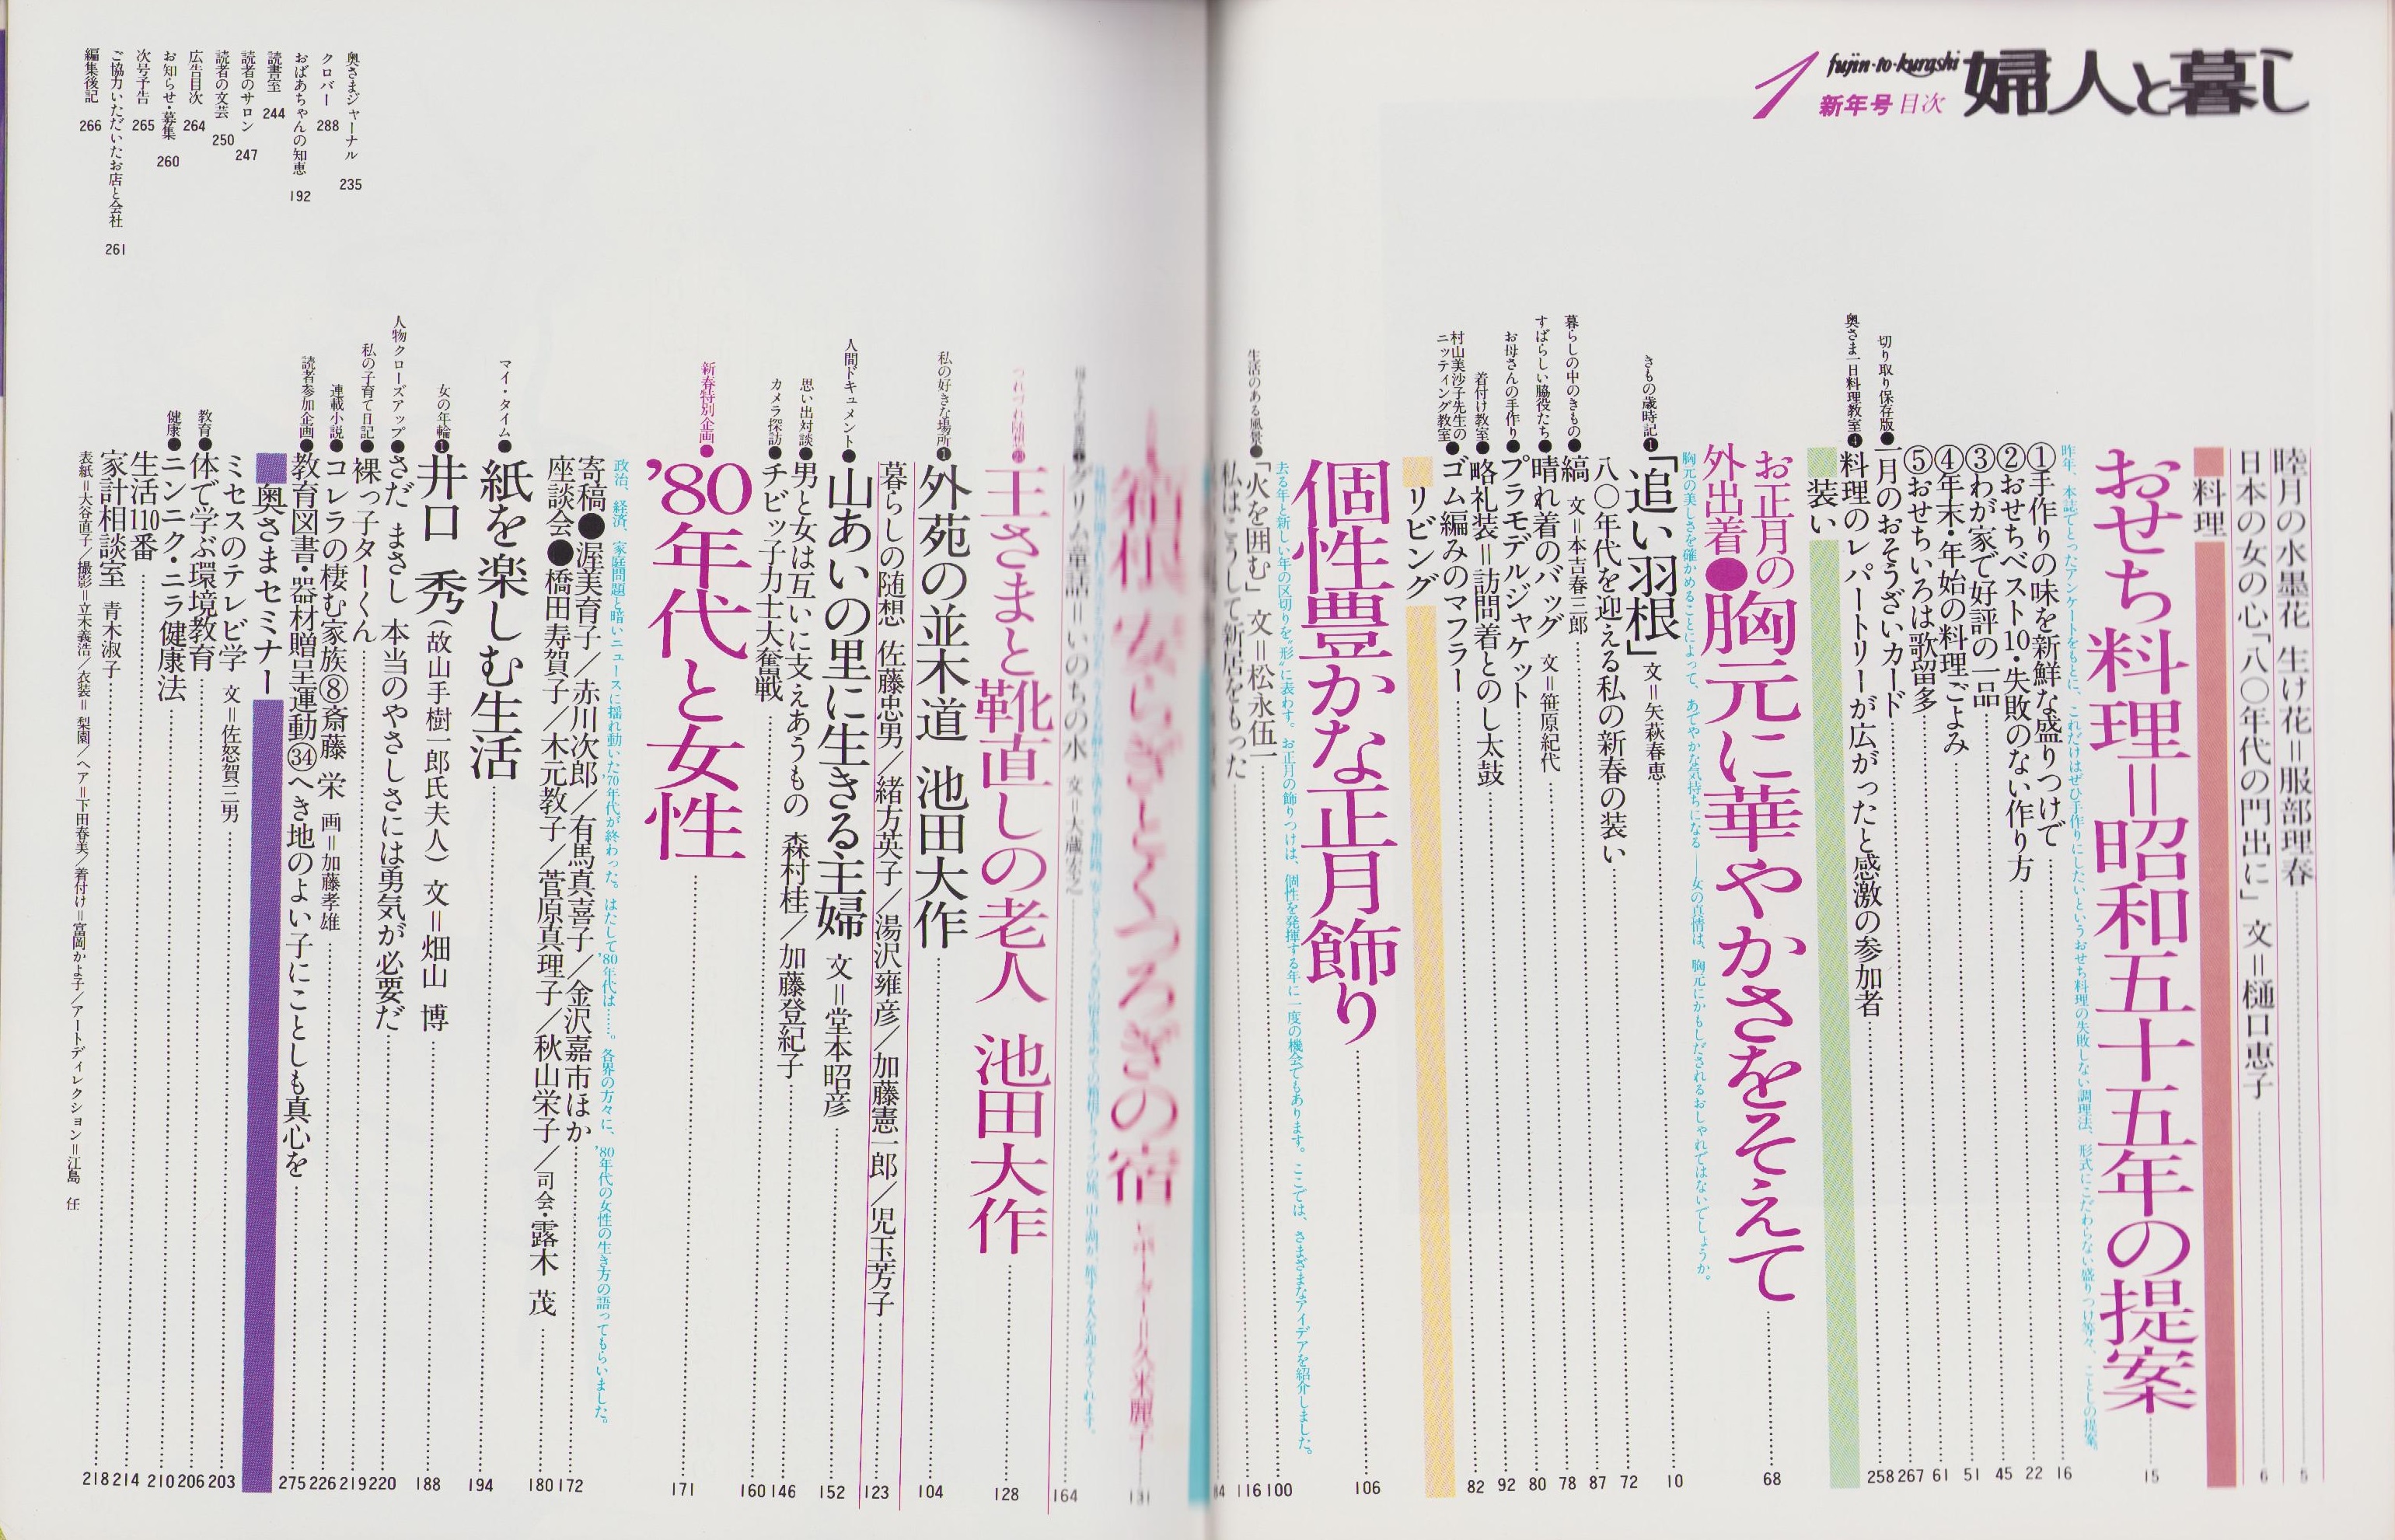 婦人と暮し
fujin-to-kurashi
1 新年号 目次
睦月の水墨花 生け花＝服部理春 5
日本の女の心「八〇年代の門出に」 文＝樋口恵子 6
料理
おせち料理＝昭和五十五年の提案 15
昨年、本誌でとったアンケートをもとに、これだけはぜひ手作りにしたいというおせち料理の失敗しない調理法、形式にこだわらない盛りつけ等々、ことしの提案。
①手作りの味を新鮮な盛りつけで 16
②おせちベスト10・失敗のない作り方 22
③わが家で好評の一品 45
④年末・年始の料理ごよみ 51
⑤おせちいろは歌留多 61
切り取り保存版●一月のおそうざいカード 267
奥さま一日料理教室❹料理のレパートリーが広がったと感激の参加者 258
装い
お正月の
外出着●胸元に華やかさをそえて 68
胸元の美しさを確かめることによって、あでやかな気持ちになる——女の真情は、胸元にかもしだされるおしゃれではないでしょうか。
きもの歳時記❶「追い羽根」 文＝矢萩春恵 10
八〇年代を迎える私の新春の装い 72
暮らしの中のきもの●縞 文＝本吉春三郎 87
すばらしい脇役たち●晴れ着のバッグ 文＝笹原紀代 78
お母さんの手作り●プラモデルジャケット 80
着付け教室●略礼装＝訪問着とのし太鼓 92
村山美沙子先生の
ニッティング教室●ゴム編みのマフラー 82
リビング
個性豊かな正月飾り 106
去る年と新しい年の区切りを“形”に表わす。お正月の飾りつけは、個性を発揮する年に一度の機会でもあります。ここでは、さまざまなアイデアを紹介しました。
生活のある風景●「火を囲む」 文＝松永伍一 100
私はこうして新居をもった 116
箱根 安らぎとくつろぎの宿 131
グリム童話＝いのちの水 文＝大蔵宏之 164
つれづれ随想 王さまと靴直しの老人 池田大作 128
私の好きな場所❶外苑の並木道 池田大作 104
暮らしの随想 佐藤忠男／緒方英子／湯沢雍彦／加藤憲一郎／児玉芳子 123
人間ドキュメント●山あいの里に生きる主婦 文＝堂本昭彦 152
思い出対談●男と女は互いに支えあうもの 森村桂／加藤登紀子 146
カメラ探訪●チビッ子力士大奮戦 160
新春特別企画●’80年代と女性 171
政治、経済、家庭問題と暗いニュースに揺れ動いた’70年代が終わった。はたして’80年代は……。各界の方々に、’80年代の女性の生き方の語ってもらいました。
寄稿●渥美育子／赤川次郎／有馬真喜子／金沢嘉市ほか 172
座談会●橋田寿賀子／木元教子／菅原真理子／秋山栄子／司会・露木 茂 180
マイ・タイム●紙を楽しむ生活 194
女の年輪❶井口 秀（故山手樹一郎氏夫人） 文＝畑山 博 188
人物クローズアップ●さだ まさし 本当のやさしさには勇気が必要だ 220
私の子育て日記●裸っ子ターくん 219
連載小説●コレラの棲む家族⑧斎藤 栄 画＝加藤孝雄 226
読者参加企画●教育図書・器材贈呈運動㉞へき地のよい子にことしも真心を 275
奥さまセミナー
ミセスのテレビ学 文＝佐怒賀三男 203
教育●体で学ぶ環境教育 206
健康●ニンニク・ニラ健康法 210
生活110番 214
家計相談室 青木淑子 218
表紙＝大谷直子／撮影＝立木義浩／衣装＝梨園／ヘア＝下田春美／着付け＝富岡かよ子／アートディレクション＝江島 任
奥さまジャーナル 235
クロバー 288
おばあちゃんの知恵 192
読書室 244
読者のサロン 247
読者の文芸 250
広告目次 264
お知らせ・募集 260
次号予告 265
ご協力いただいたお店と会社 261
編集後記 266